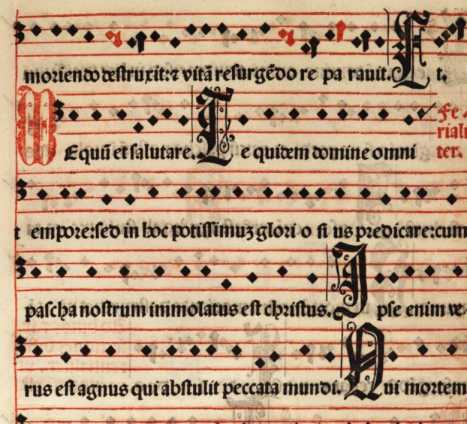 moriendo destruxit: ⁊ vitā resurgēdo re pa rauit. E t.
Fe
Equū et salutare. T e quidem domine omni riali ter.
t empore: sed in hoc potissimuꝫ glori o si us predicare: cum
pascha nostrum immolatus est christus. I pse enim ve
rus est agnus qui abstulit peccata mundi. Q ui mortem